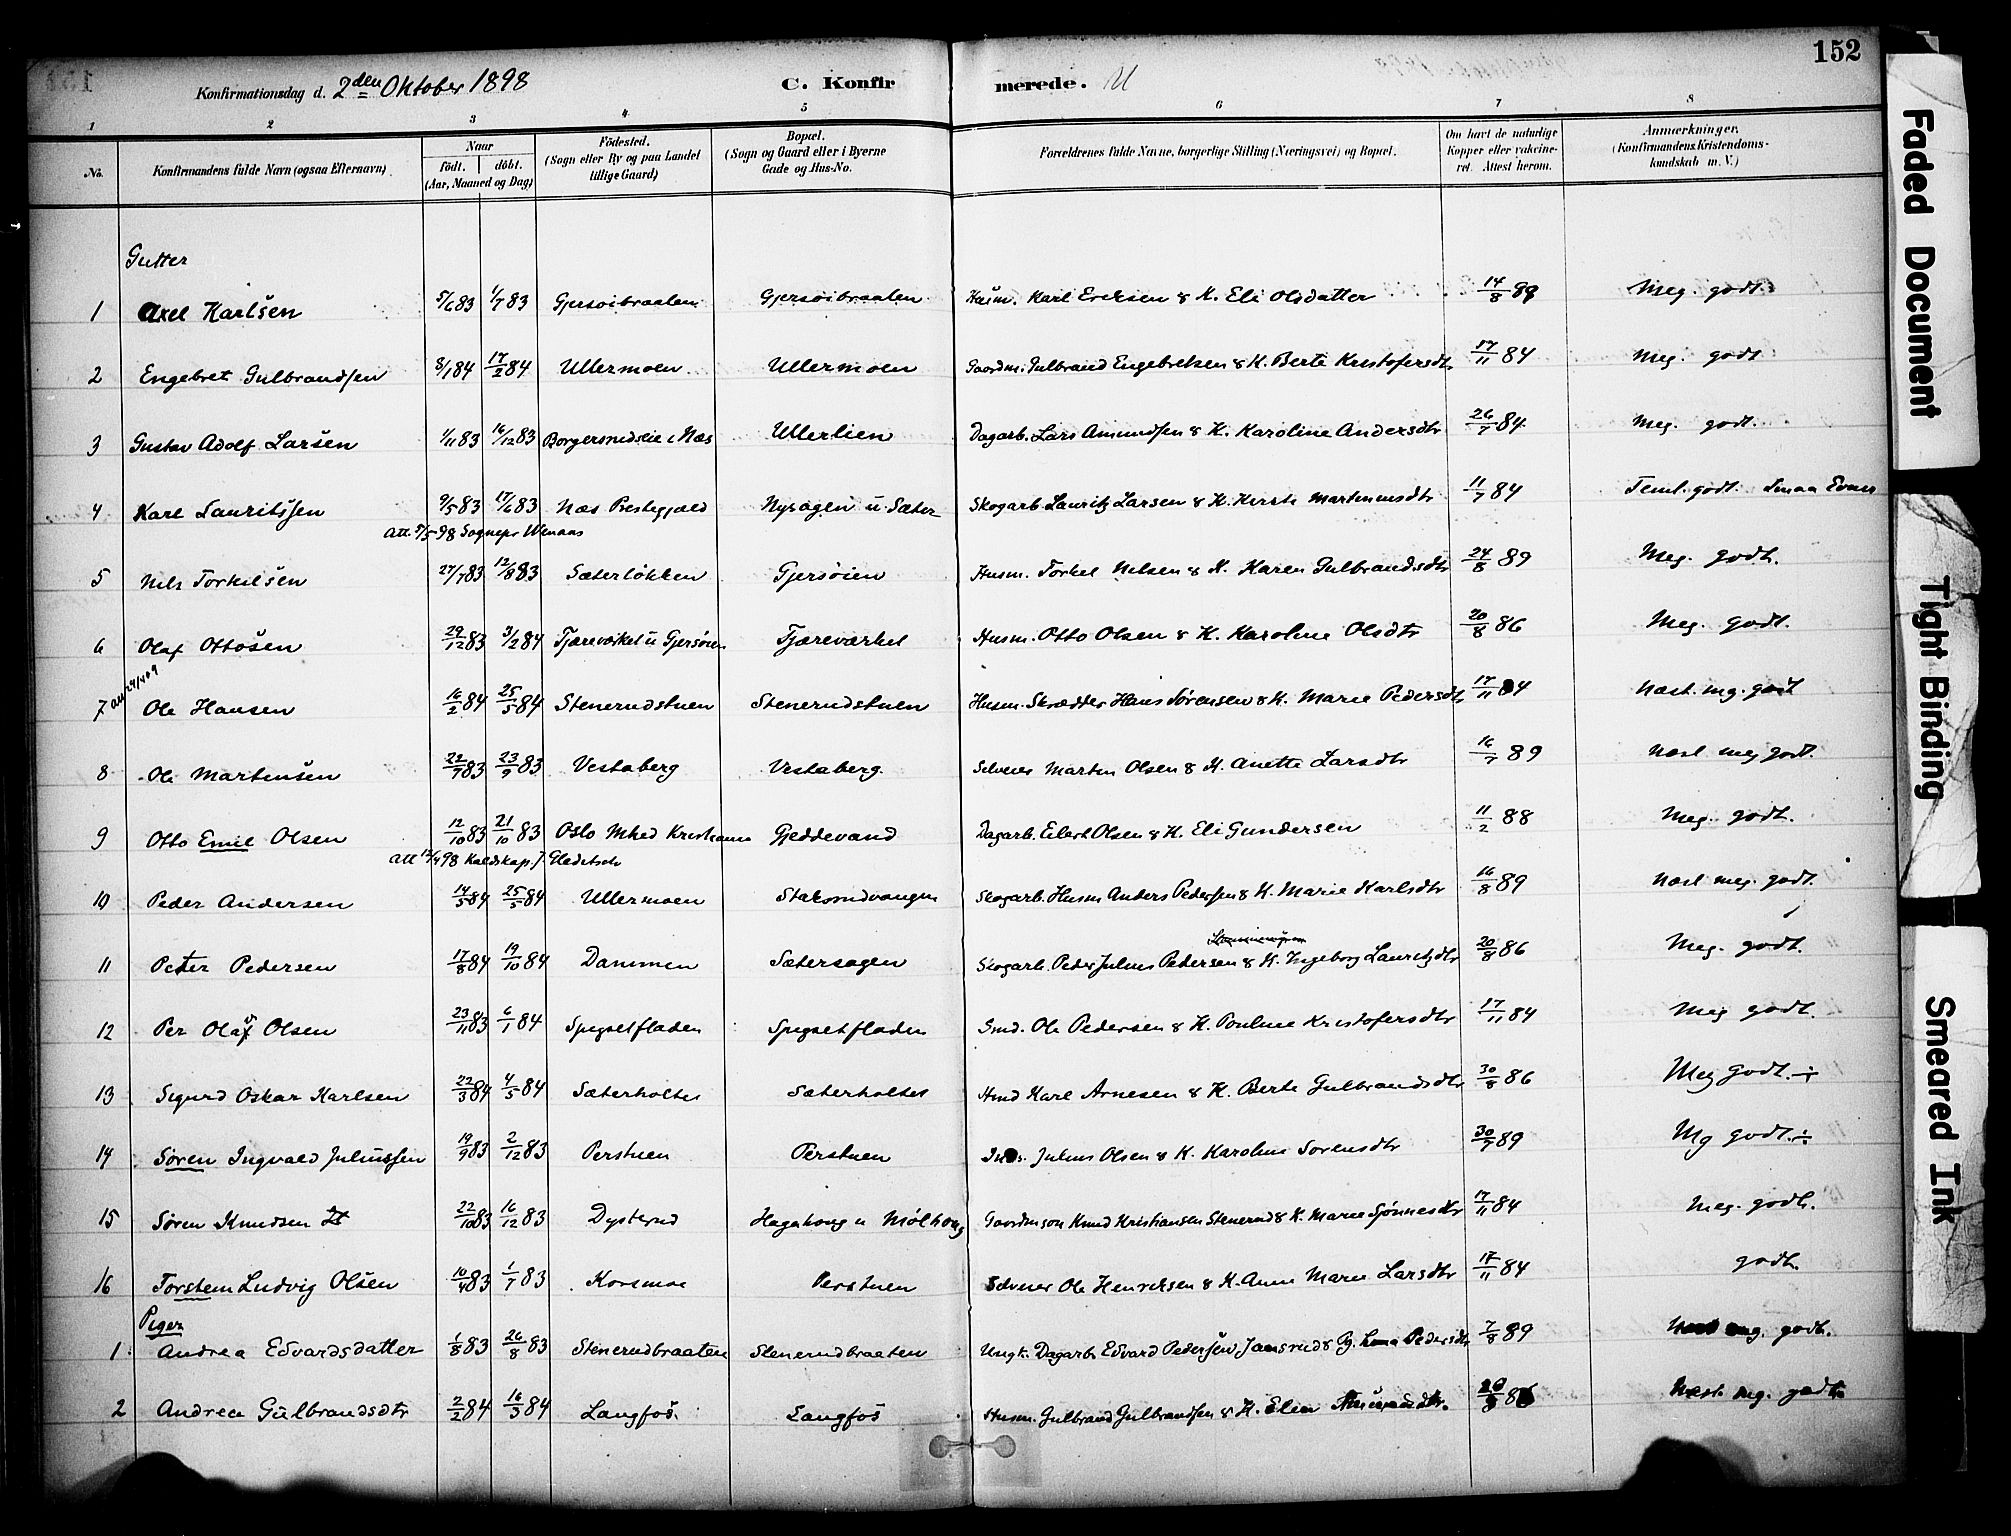 152
Konfirmationsdag d. 2den Oktober 1898 C. Konfir merede.
1 2 3 4 5 6 7 8
No. Konfirmandens fulde Navn (ogsaa Efternavn) Naar født. døbt. (Aar, Maaned og Dag) Fødested. (Sogn eller By og paa Landet tillige Gaard) Bopæl. (Sogn og Gaard eller i Byerne Gade og Hus-No. Forældrenes fulde Navne, borgerlige Stilling (Næringsvei) og Bopæl. Om havt de naturlige Kopper eller vakcineret. Attest herom. Anmærkninger. (Konfirmandens Kristendomskundskab m. V.)
Gutter
1 Axel Karlsen 5/6 83 1/7 83 Gjersøibraaten Gjersøibraaten Husm. Karl Ericksen & K. Eli Olsdatter 14/8 89 Meg. godt.
2 Engebret Gulbrandsen 8/1 84 17/2 84 Ullermoen Ullermoen Gaardm. Gulbrand Engebretsen & K. Berte Kristofersdtr 17/11 84 Meg. godt
3 Gustav Adolf Larsen 1/11 83 16/12 83 Borgersrudseie i Næs Ullerlien Dagarb. Lars Amundsen & K. Karoline Andersdtr 26/7 84 Meg. godt.
4 Karl Lauritssen 9/5 83 17/6 83 Næs Prestegjæld Nysagen u. Sæter Skogarb. Lauritz Larsen & K. Kersti Martinusdtr 11/7 84 Teml. godt Smaa Evner
Att. 9/5 98 Sognepr
5 Nils Torkelsen 27/7 83 12/8 83 Sæterløkken Gjersøien Husm. Torkel Nilsen & K. Karen Gulbrandsdtr 24/8 89 Meg. godt.
6 Olaf Ottosen 29/12 83 3/2 84 Tjæreværket u Gjersøien Tjæreværket Husm. Otto Olsen & K. Karoline Olsdtr 20/8 86 Meg. godt.
7 Ole Hansen 16/2 84 25/5 84 Stenerudstuen Stenerudstuen Husm. Skrædder Hans Sørensen & K. Marie Pedersdtr 17/11 84 Næst. mg. godt
8 Ole Martinsen 22/7 83 23/9 83 Vestaberg Vestaberg Selveier Martin Olsen & K. Anette Larsdtr 16/7 89 Næst meg godt.
9 Otto Emil Olsen 12/10 83 21/10 83 Oslo Mhed Kristiania Gjeddevand Dagarb. Eilert Olsen & K. Eli Gundersen 11/2 88 Meg. godt.
Att 12/4 98
10 Peder Andersen 14/5 84 25/5 84 Ullermoen Staksrudvangen Skogarb. Husm Anders Pedersen & K. Marie Karlsdtr 16/8 89 Næst meg. godt.
11 Peter Pedersen 17/8 84 19/10 84 Dammen Sætersagen Skogarb. Peder Julius Pedersen & K. Ingeborg Lauritzdtr 20/8 86 Meg. godt.
12 Per Olaf Olsen 23/11 83 6/1 84 Spigsetfladen Spigsetfladen Smd. Ole Pedersen & K. Pouline Kristofersdtr 17/11 84 Meg godt.
13 Sigurd Oskar Karlsen 22/3 84 4/5 84 Sæterholtet Sæterholtet Hmd Karl Arnesen & K. Berte Gulbrandsdtr 30/8 86 Meg godt. ÷
14 Søren Ingvald Juliussen 19/9 83 2/12 83 Perstuen Perstuen Julius Olsen & K. Karoline Sørensdtr 30/7 89 Mg godt. ÷
15 Søren Knudsen 22/10 83 16/12 83 Dysterud Hagahoug u Mølhoug Gaardmson Knud Kristiansen Stenerud & K. Marie Sjønnesdtr 17/11 84 Meg. godt.
16 Torstein Ludvig Olsen 10/4 83 1/7 83 Korsmoe Perstuen Selveier Ole Henriksen & K. Anne Marie Larsdtr 17/11 84 godt.
Piger
1 Andrea Edvardsdatter 1/8 83 26/8 83 Stenerudbraaten Stenerudbraaten Ungk. Dagarb. Edvard Pedersen Jonsrud & Pg. Lena Pedersdtr 7/8 89 Næst mg. godt.
2 Andrea Gulbrandsdtr 2/2 84 16/3 84 Langfos Langfos Husm. Gulbrand Gulbrandsen & K. Elin 86 Næst. mg. godt.
Faded Document
Tight Binding
Smeared Ink